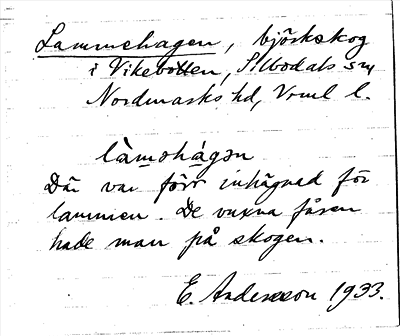 Lammehagen, björkskog
i Vikebotten, S. Ubodals sn,
Nordmarks hd, Vrml l.
làməhágən
Där var förr inhägnad för
lammen. De vuxna fåren
hade man på skogen.
E. Andersson 1933.